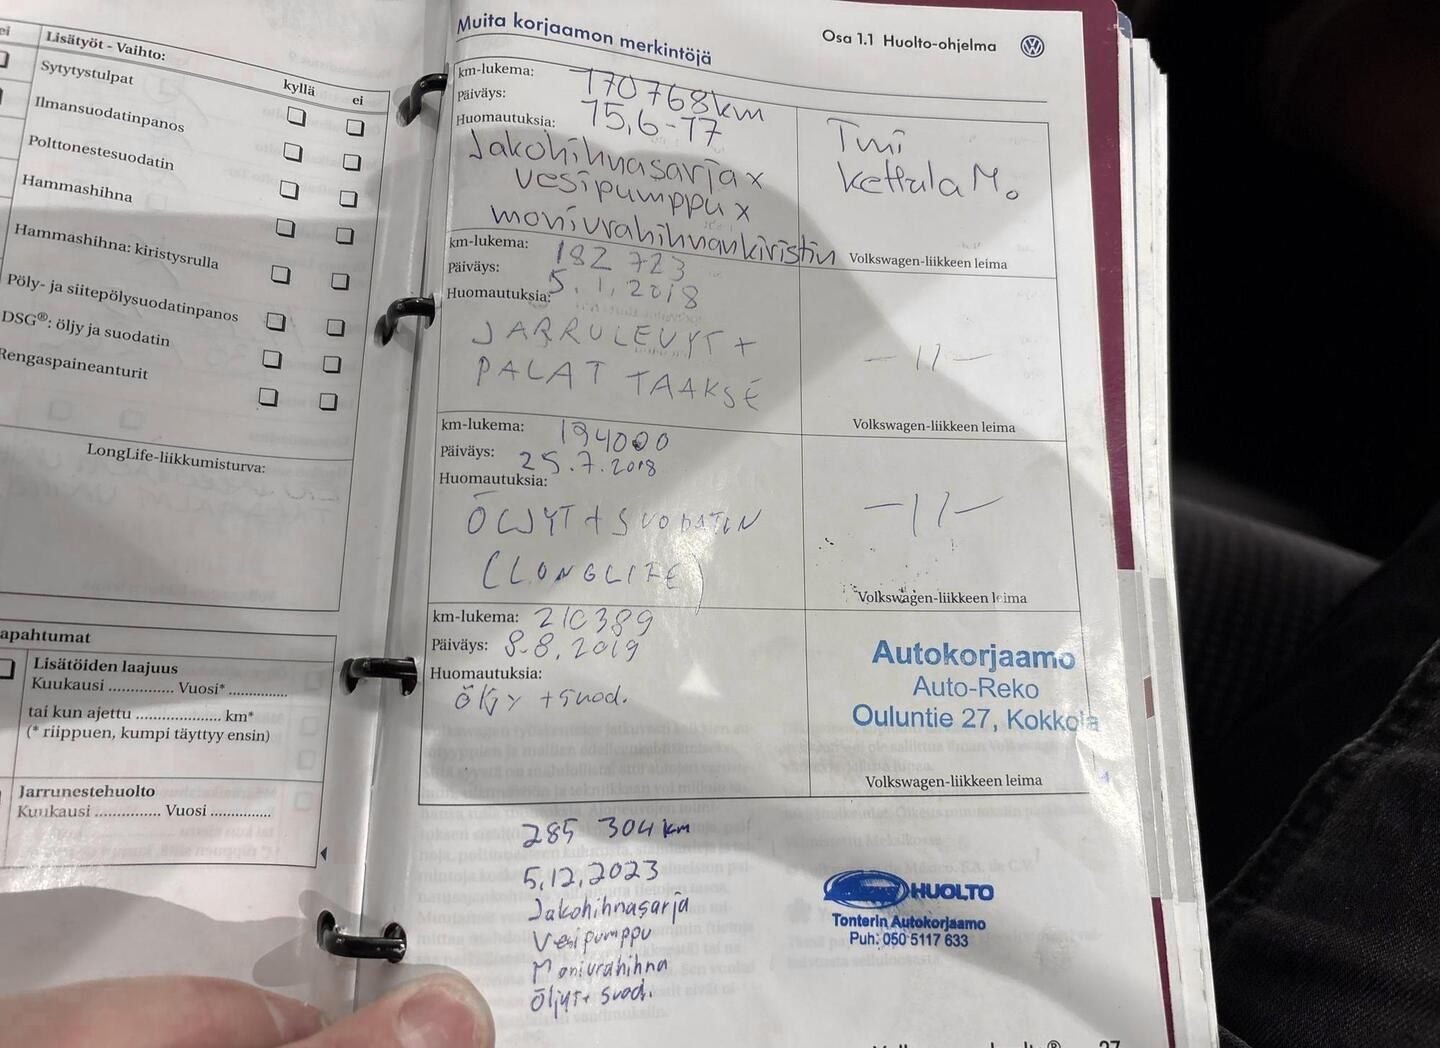 ei
Lisätyöt - Vaihto:
kyllä ei
Sytytystulpat
Ilmansuodatinpanos
Polttonestesuodatin
Hammashihna
Hammashihna: kiristysrulla
Pöly- ja siitepölysuodatinpanos
DSG®: öljy ja suodatin
Rengaspaineanturit
LongLife-liikkumisturva:
apahtumat
Lisätöiden laajuus
Kuukausi .............. Vuosi* ..............
tai kun ajettu .................... km*
(* riippuen, kumpi täyttyy ensin)
Jarrunestehuolto
Kuukausi .............. Vuosi ..............
Muita korjaamon merkintöjä
Osa 1.1 Huolto-ohjelma
km-lukema: 170768km
Päiväys: 15.6-17
Huomautuksia:
Jakohihnasarja x
vesipumppu x
moniurahihnankiristin
Tmi
Kettula M.
Volkswagen-liikkeen leima
km-lukema: 182 723
Päiväys: 5.1.2018
Huomautuksia:
JARRULEVYT +
PALAT TAAKSE
-11-
Volkswagen-liikkeen leima
km-lukema: 194000
Päiväys: 25.7.2018
Huomautuksia:
ÖLJYT + SUODATIN
(LONGLIFE)
-11-
Volkswagen-liikkeen leima
km-lukema: 210389
Päiväys: 8.8.2019
Huomautuksia:
öljy + suod.
Autokorjaamo
Auto-Reko
Ouluntie 27, Kokkola
Volkswagen-liikkeen leima
285 304 km
5.12.2023
Jakohihnasarja
Vesipumppu
Moniurahihna
Öljyt + suod.
HUOLTO
Tonterin Autokorjaamo
Puh. 050 5117 633
27